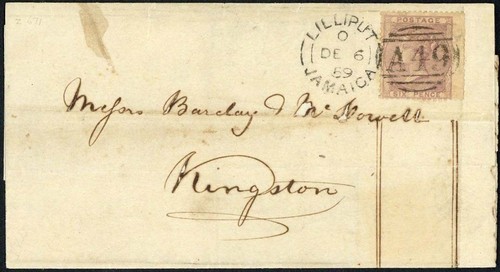 LILLIPUT
O
DE 6
59
JAMAICA
POSTAGE
A49
SIX PENCE
Messrs Barclay & McDowell
Kingston